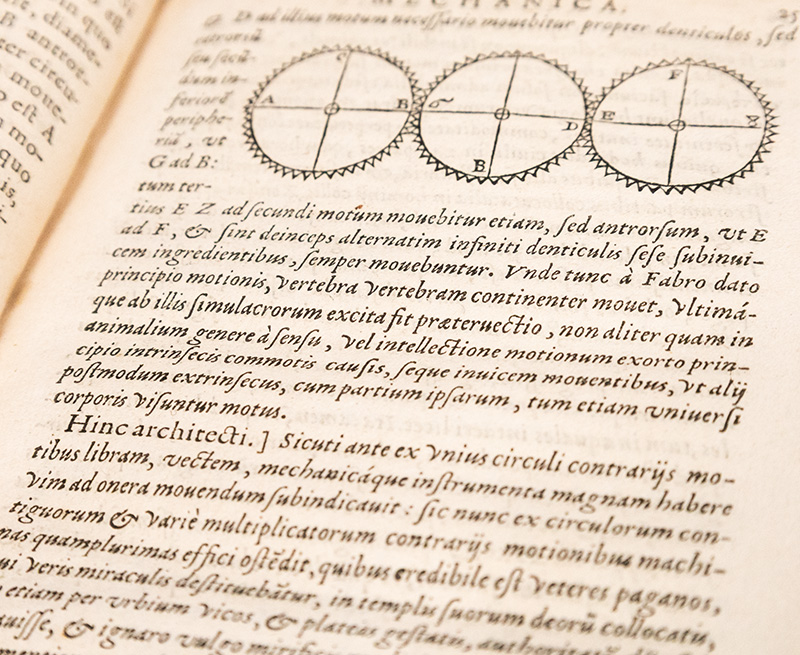 MECHANICA. 25
D ad illius motum necessario mouebitur propter denticulos, sed
seu secū-
dum in-
feriorē
periphe-
riā, vt
G ad B:
tum ter-
A B C
D B
E F Z
tius E Z ad secundi motum mouebitur etiam, sed antrorsum, vt E
ad F, & sint deinceps alternatim infiniti denticulis sese subinui-
cem ingredientibus, semper mouebuntur. Vnde tunc à Fabro dato
principio motionis, vertebra vertebram continenter mouet, vltimá-
que ab illis simulacrorum excita fit præteruectio, non aliter quam in
animalium genere à sensu, vel intellectione motionum exorto prin-
cipio intrinsecis commotis causis, seque inuicem mouentibus, vt alij
postmodum extrinsecus, cum partium ipsarum, tum etiam vniuersi
corporis visuntur motus.
Hinc architecti.] Sicuti ante ex vnius circuli contrarijs mo-
tibus libram, vectem, mechanicáque instrumenta magnam habere
vim ad onera mouendum subindicauit: sic nunc ex circulorum con-
tiguorum & variè multiplicatorum contrarijs motionibus machi-
nas quamplurimas effici ostēdit, quibus credibile est veteres paganos,
ui veris miraculis destituebātur, in templis suorum deorū collocatis,
etiam per vrbium vicos, & plateas gestatis,
uisse, & ignaro vulgo